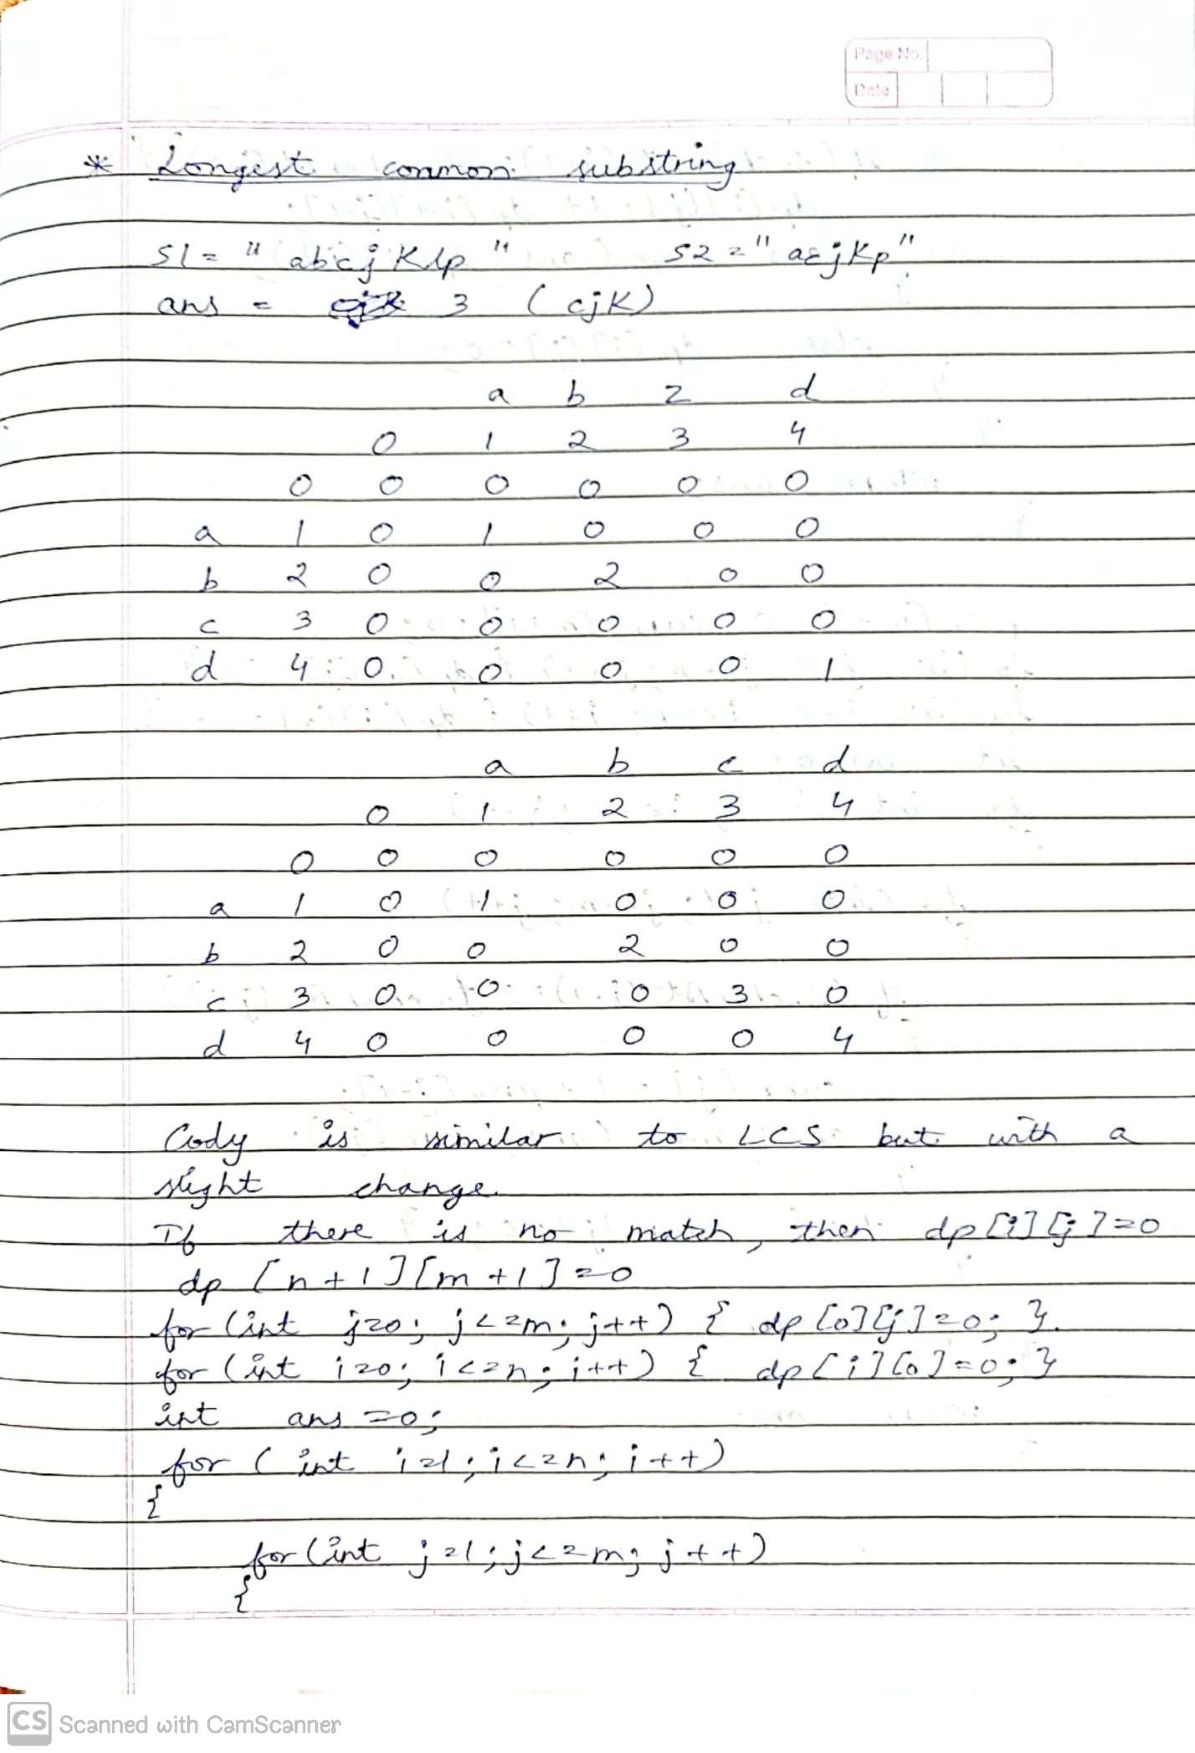 Page No.
Date
* Longest common substring
S1 = "abcjklp" S2 = "acjkp"
ans = 3 (cjk)
a b z d
0 1 2 3 4
0 0 0 0 0 0
a 1 0 1 0 0 0
b 2 0 0 2 0 0
c 3 0 0 0 0 0
d 4 0 0 0 0 1
a b c d
0 1 2 3 4
0 0 0 0 0 0
a 1 0 1 0 0 0
b 2 0 0 2 0 0
c 3 0 0 0 3 0
d 4 0 0 0 0 4
Cody is similar to LCS but with a
slight change.
If there is no match, then dp[i][j]=0
dp [n+1][m+1]=0
for (int j=0; j<=m; j++) { dp[0][j]=0; }
for (int i=0; i<=n; i++) { dp[i][0]=0; }
int ans=0;
for (int i=1; i<=n; i++)
{
for (int j=1; j<=m; j++)
{
CS Scanned with CamScanner